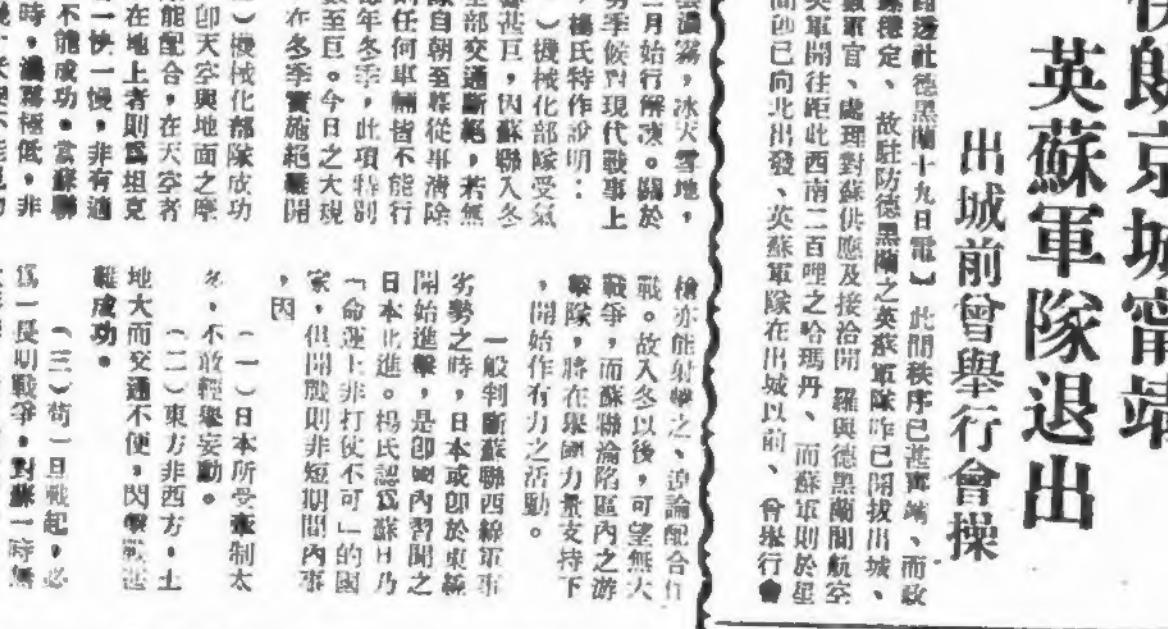 朗京城甯靖
英蘇軍隊退出
出城前曾舉行會操
透社德黑蘭十九日電】此間秩序已甚甯靖、而政
穩定、故駐防德黑蘭之英蘇軍隊昨已開拔出城、
軍官、處理對蘇供應及接洽開 羅與德黑蘭間航空
英軍開往距此西南二百哩之哈瑪丹、而蘇軍則於星
已向北出發、英蘇軍隊在出城以前、曾舉行會
濃霧,冰天雪地,
月始行解凍。關於
季候對現代戰事上
楊氏特作說明:
)機械化部隊受氣
甚巨,因蘇聯入冬
部交通斷絕,若無
自朝至暮從事清除
任何車輛皆不能行
年冬季,此項特別
至巨。今日之大規
在冬季實施絕難開
)機械化部隊成功
即天空與地面之
能配合,在天空者
在地上者則爲坦克
一快一慢,非有適
不能成功。當蘇聯
時,濃霧極低,非
槍亦能射擊之、遑論配合作
戰。故入冬以後,可望無大
戰爭,而蘇聯淪陷區內之游
擊隊,將在舉國力量支持下
,開始作有力之活動。
一般判斷蘇聯西線軍事
劣勢之時,日本或卽於東線
開始進擊,是卽國內習聞之
日本北進。楊氏認爲蘇日乃
「命運上非打仗不可」的國
家,但開戰則非短期間內事
,因
(一)日本所受牽制太
多,不敢輕舉妄動。
(二)東方非西方,土
地大而交通不便,閃擊戰
難成功。
(三)苟一旦戰起,必
爲一長期戰爭,對蘇一時無